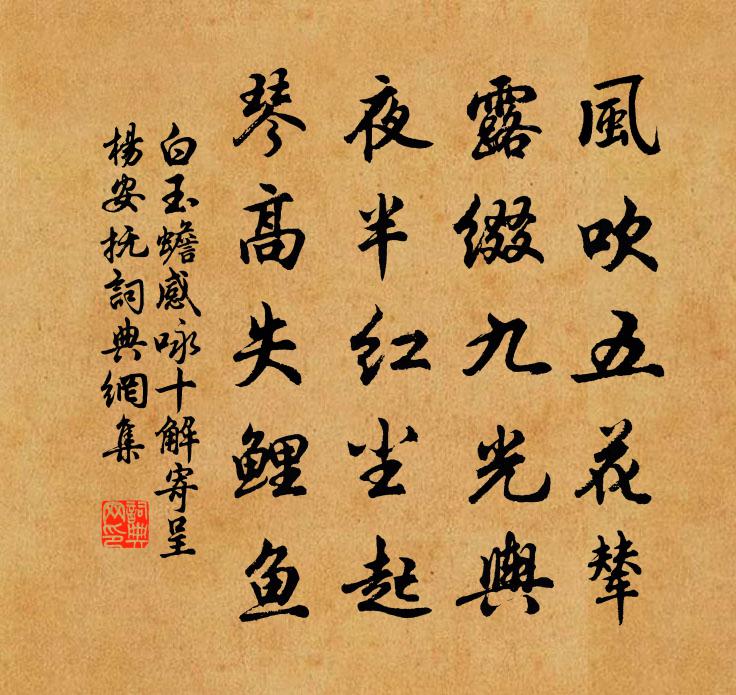 風吹五花辇
露缀九光舆
夜半红尘起
琴高失鲤鱼
白玉蟾感咏十解寄呈
楊安抚詞典網集
詞典网印